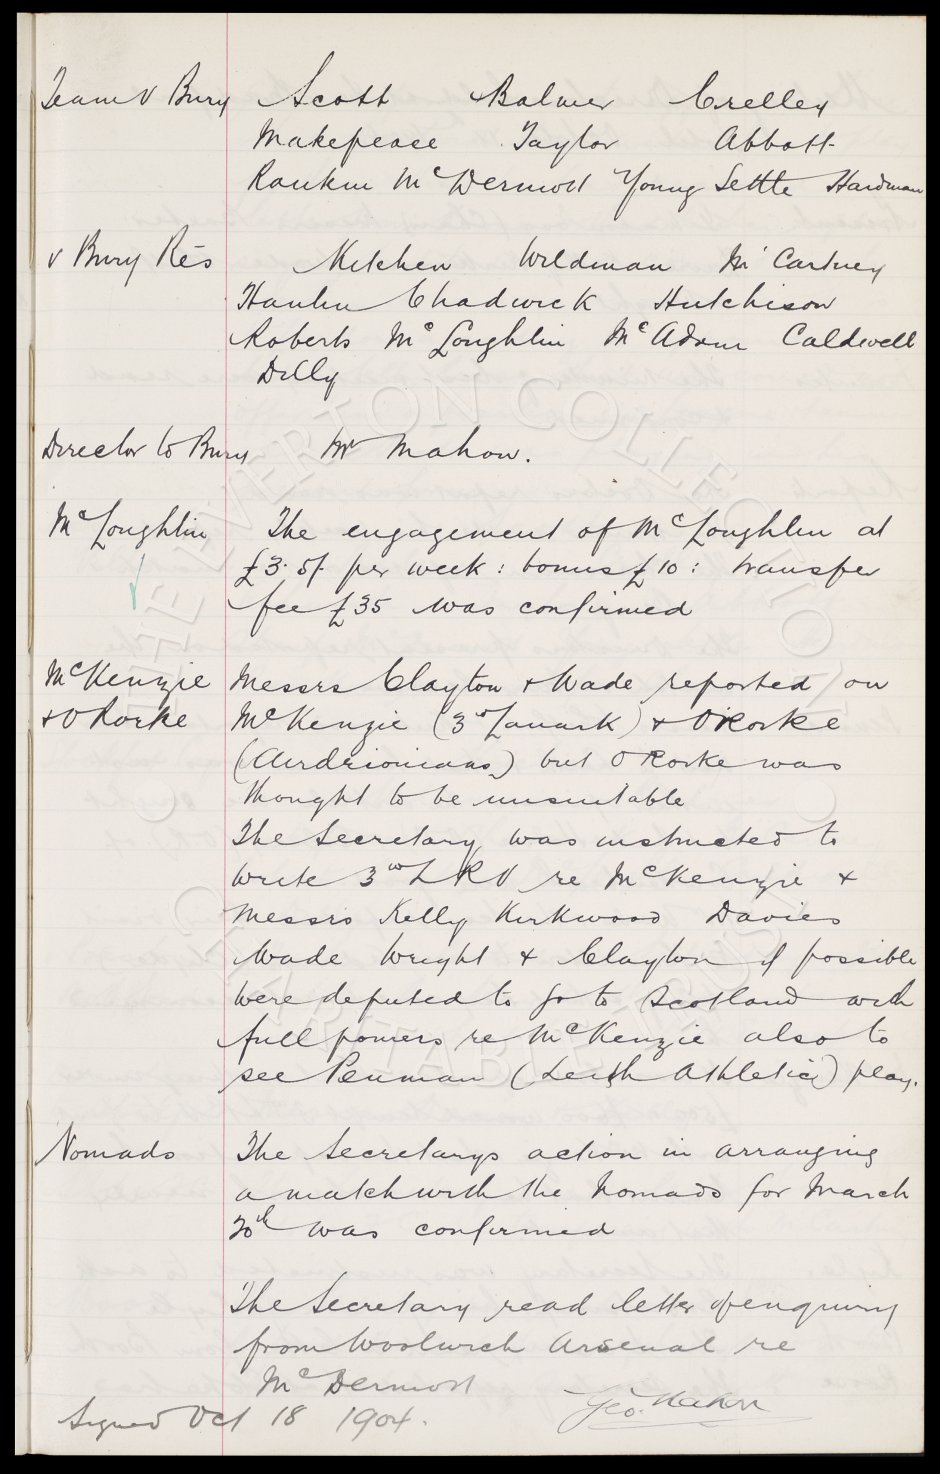 Team v Bury Scott Balmer Crelley
Makepeace Taylor Abbott
Rankin McDermott Young Settle Hardman
v Bury Res Kitchen Wildman McCartney
Chadwick Hutchison
Roberts McLoughlin McAdam Caldwell
Dilly
Director to Bury Mr Mahon.
McLoughlin The engagement of McLoughlin at
£3.5/- per week : bonus £10 : transfer
fee £35 was confirmed
McKenzie Messrs Clayton & Wade reported on
& O'Rorke McKenzie (3rd Lanark) & O'Rorke
(Airdrieonians) but O'Rorke was
thought to be unsuitable
The Secretary was instructed to
write 3rd LRV re McKenzie &
Messrs Kelly Kirkwood Davies
Wade Wright & Clayton if possible
were deputed to go to Scotland with
full powers re McKenzie also to
see Penman (Leith Athletic) play.
Nomads The Secretarys action in arranging
a match with the Nomads for March
20th was confirmed
The Secretary read letter of enquiry
from Woolwich Arsenal re
McDermott
Signed Oct 18 1904. Geo. Mahon
THE EVERTON COLLECTION
CHARITABLE TRUST